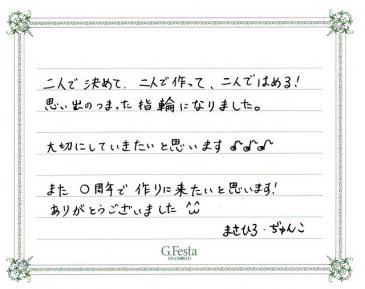 二人で決めて、二人で作って、二人ではめる！
思い出のつまった指輪になりました。
大切にしていきたいと思います♪♪♪
また〇周年で作りに来たいと思います！
ありがとうございました^^
まさひろ・ぢゅんこ
G.Festa
DIAMOND